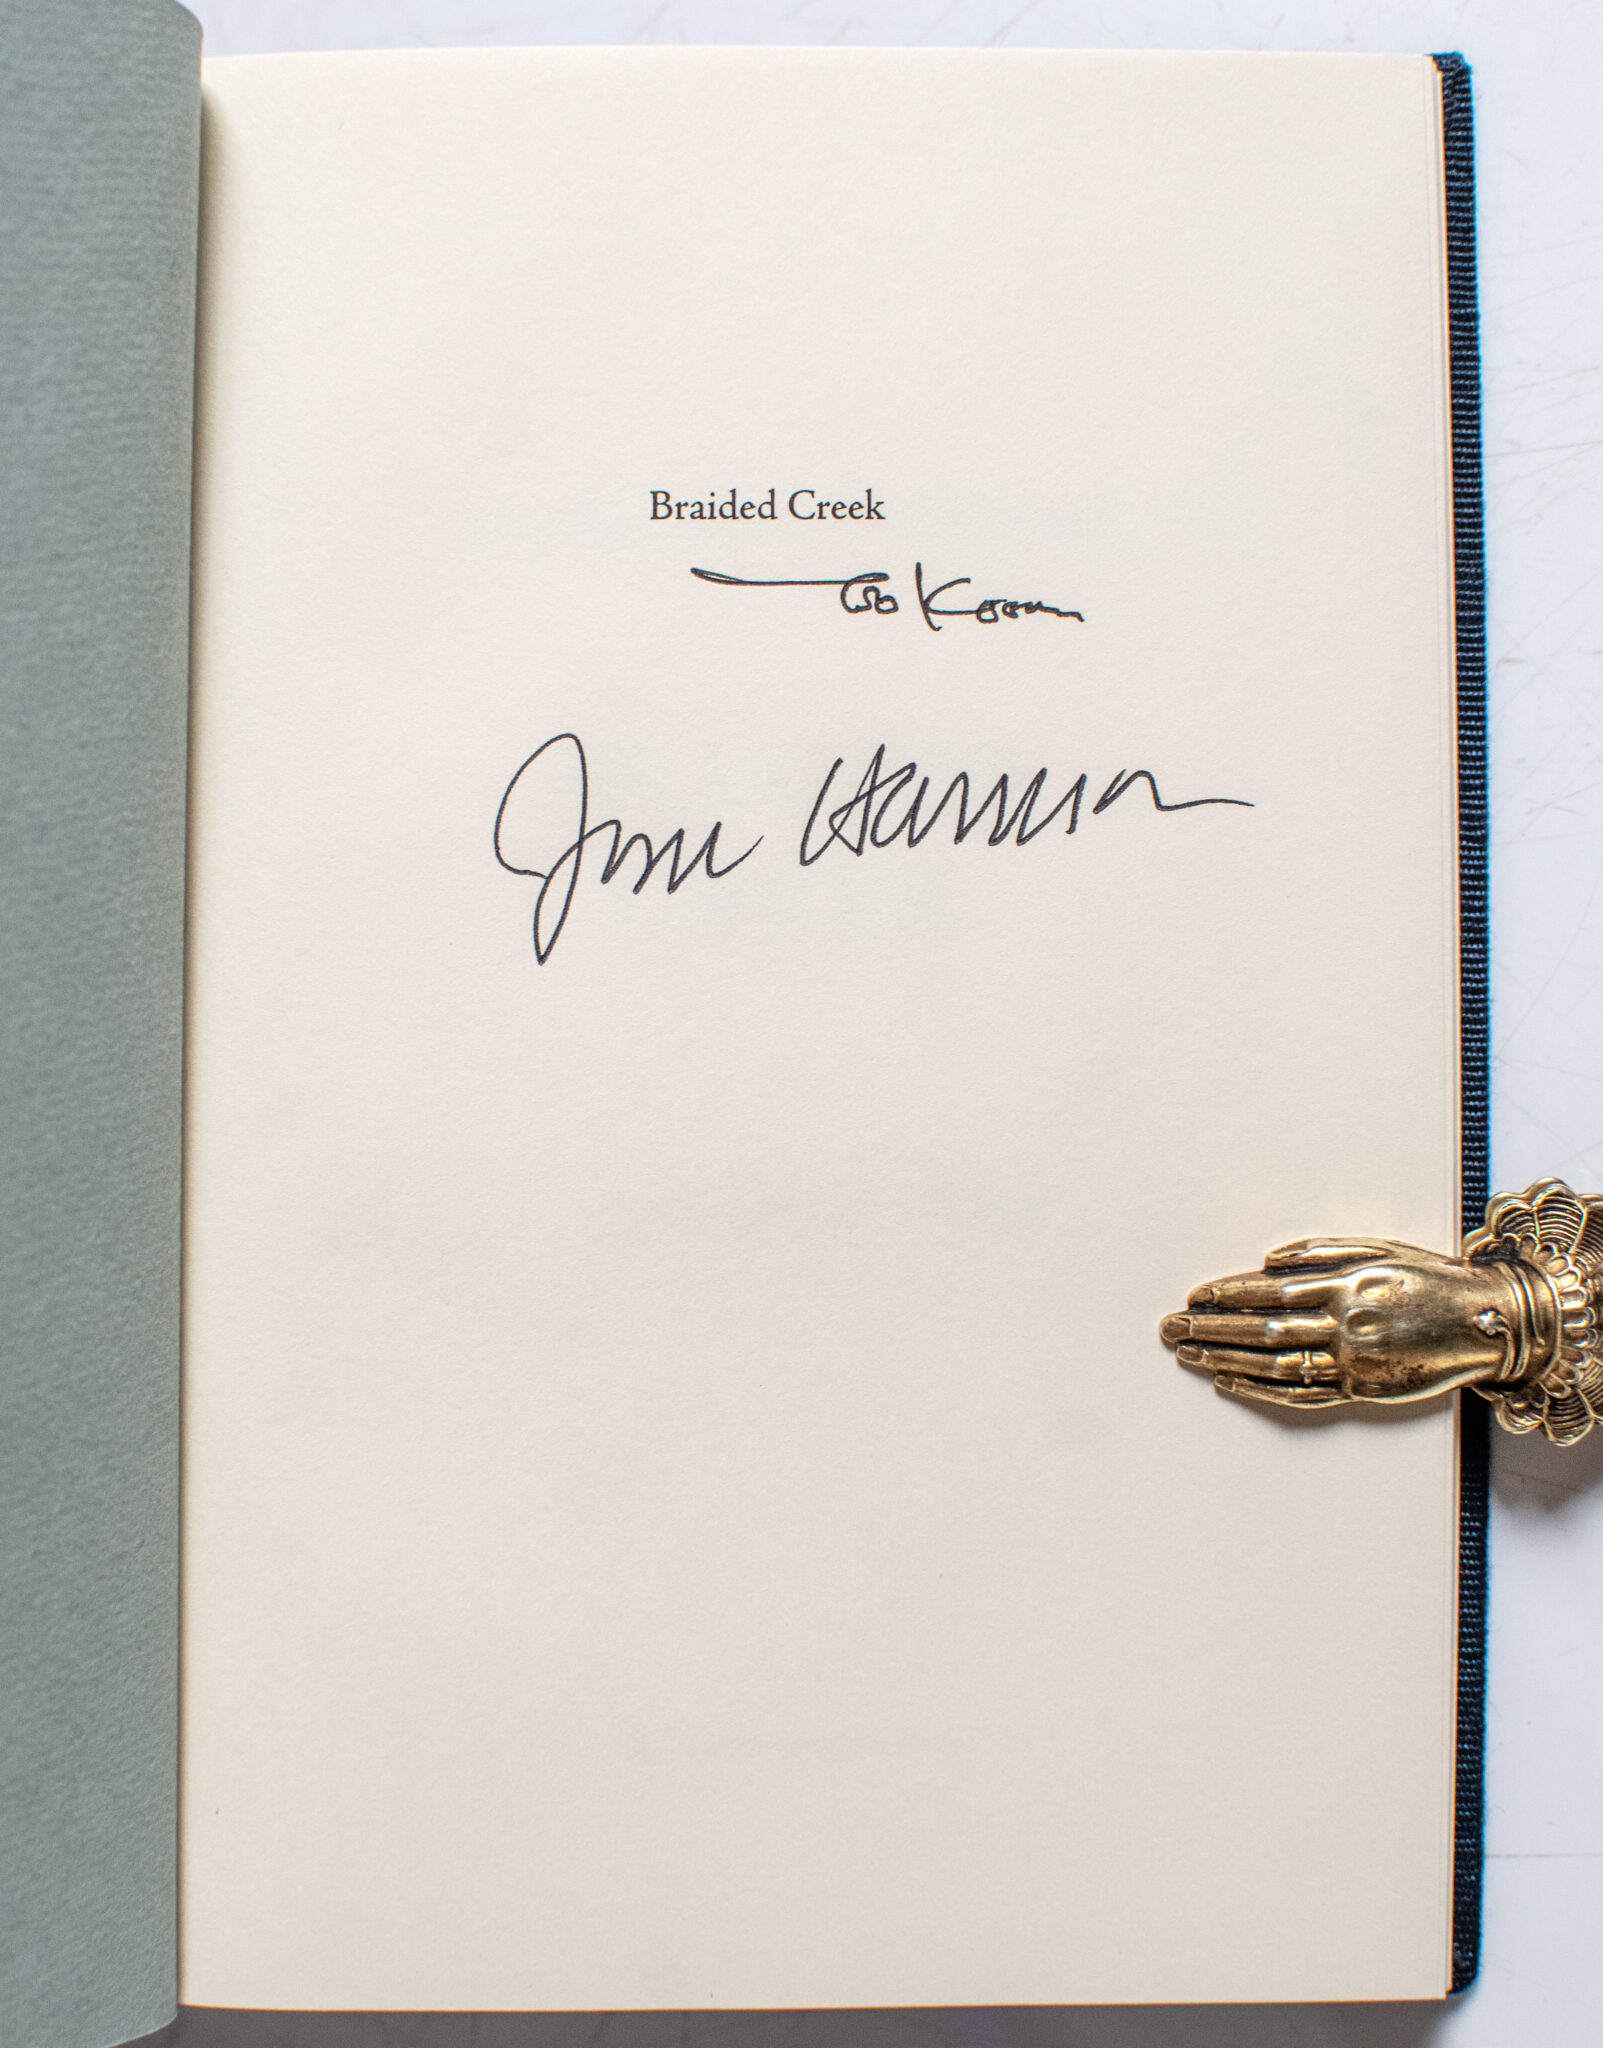 Braided Creek
Ted Kooser
Jim Harrison